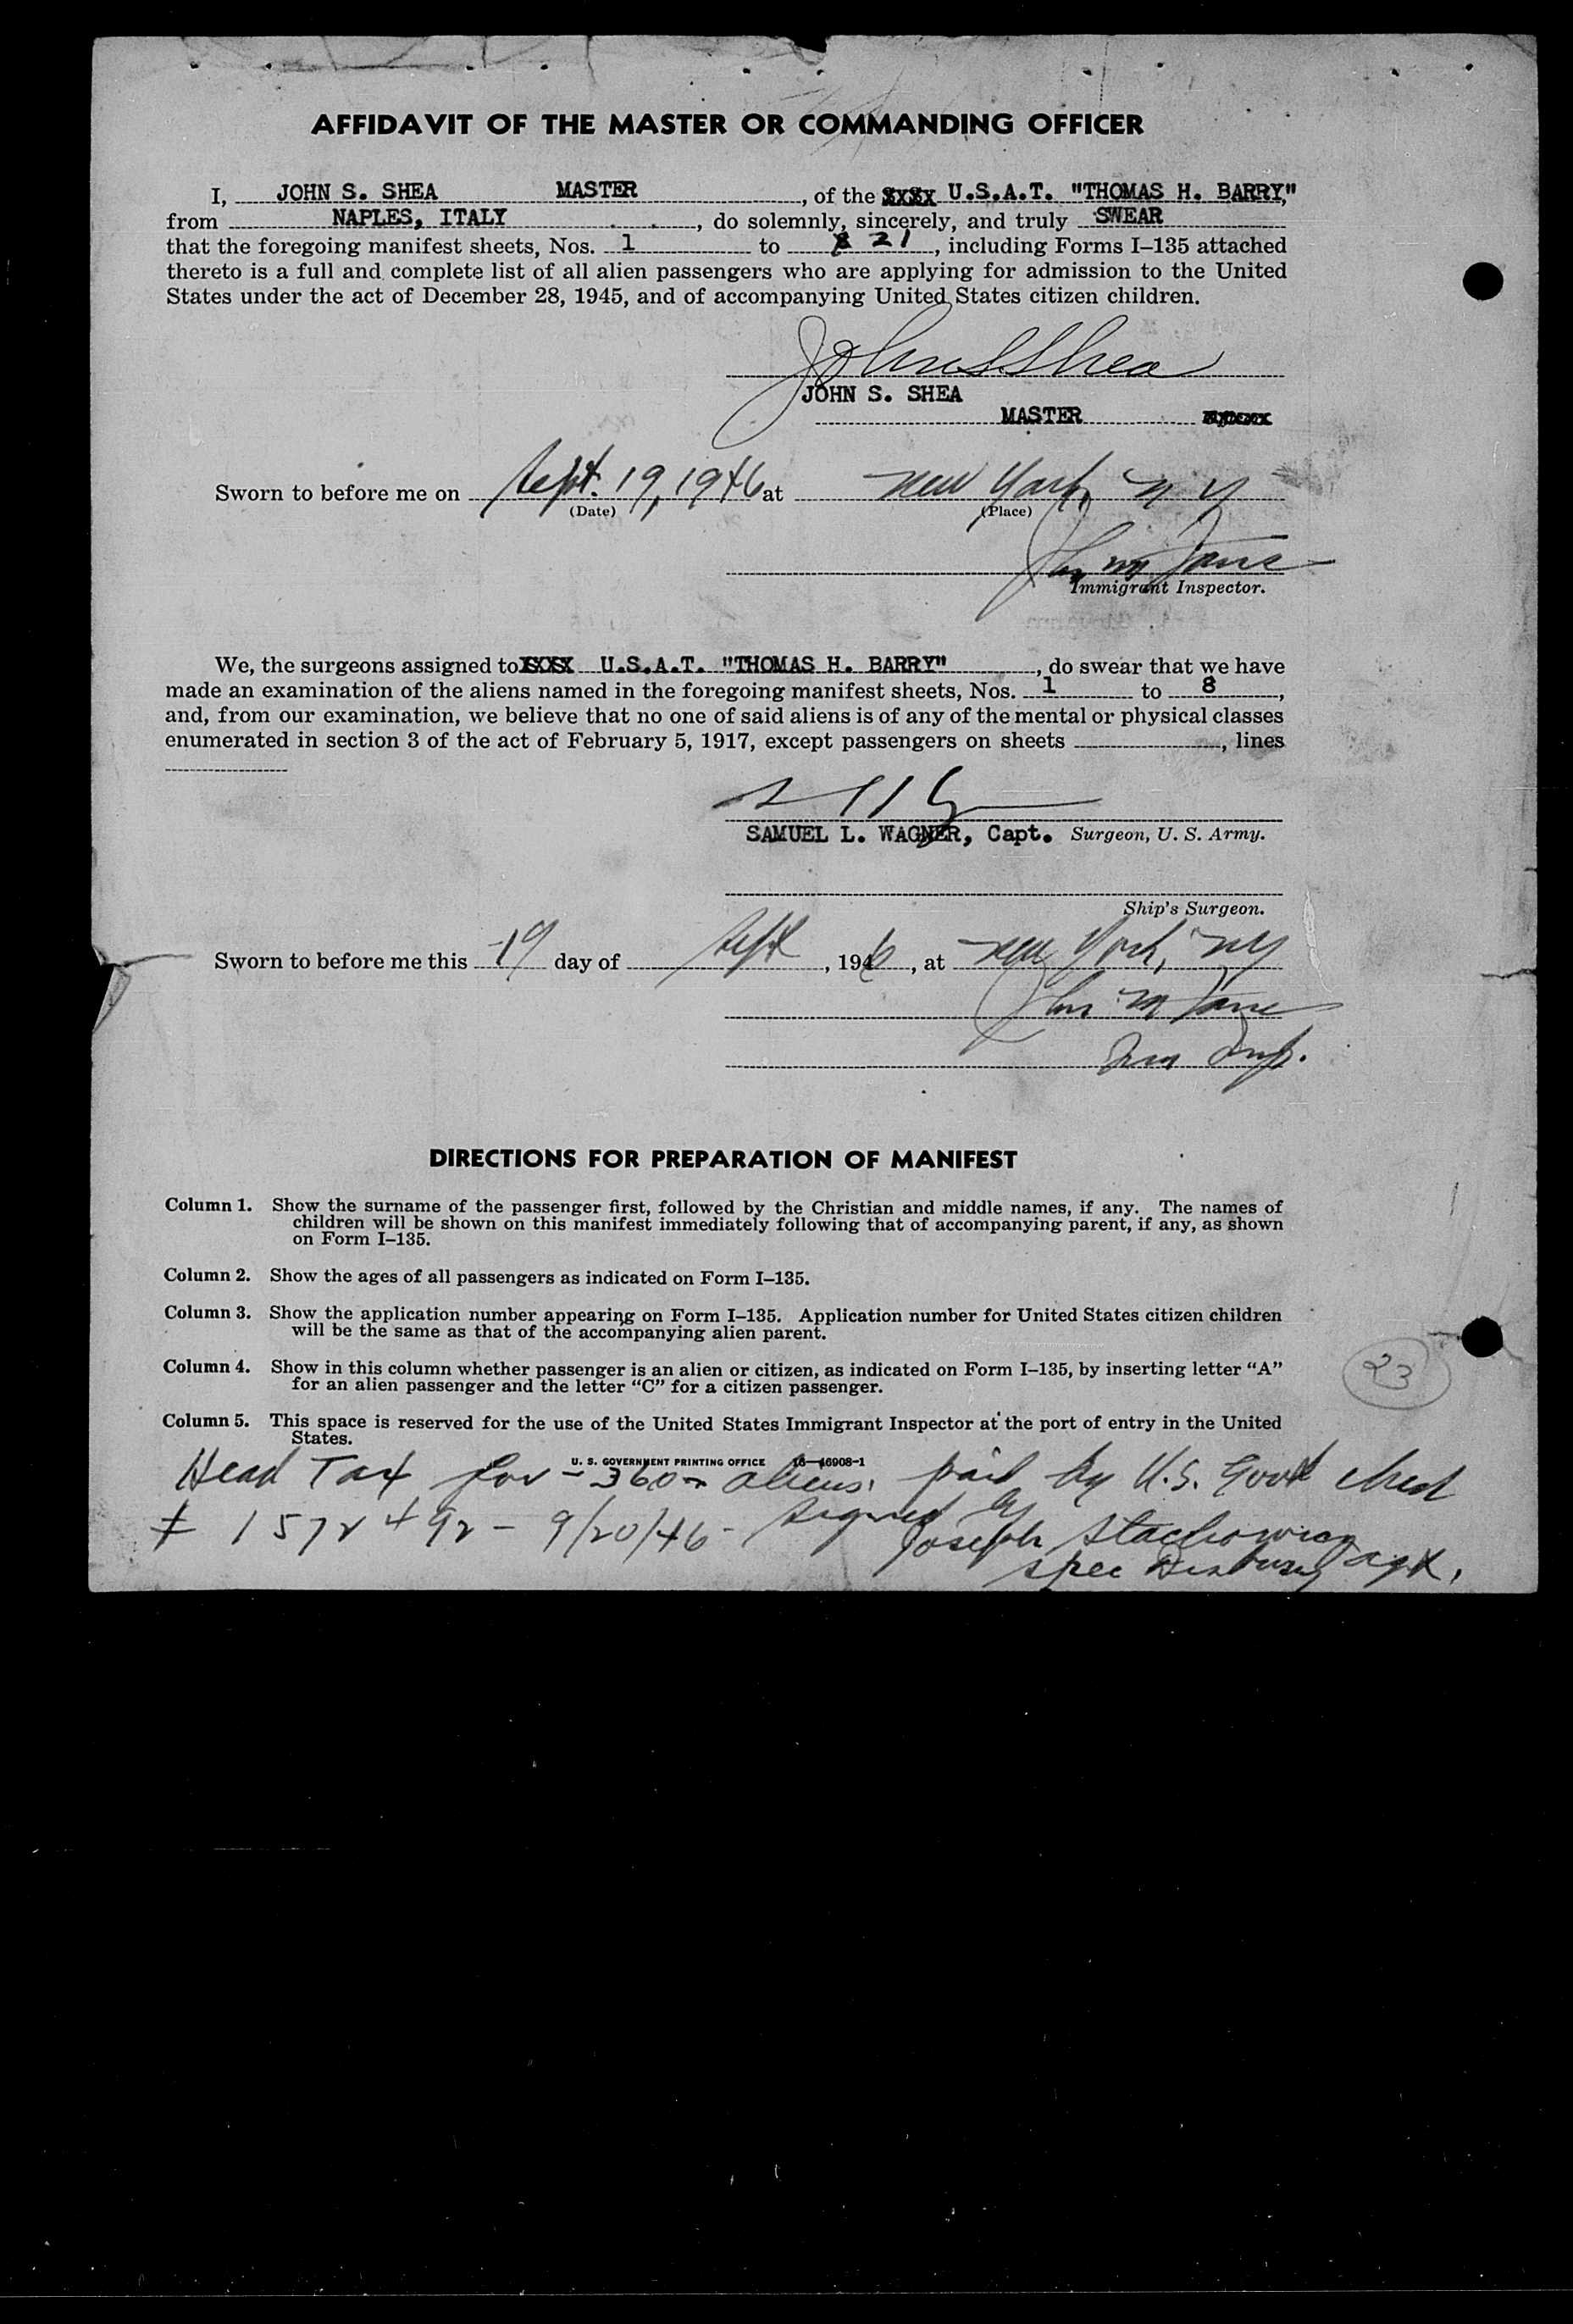 AFFIDAVIT OF THE MASTER OR COMMANDING OFFICER
I, JOHN S. SHEA MASTER, of the U.S.A.T. "THOMAS H. BARRY,"
from NAPLES, ITALY, do solemnly, sincerely, and truly SWEAR
that the foregoing manifest sheets, Nos. 1 to 21, including Forms I–135 attached
thereto is a full and complete list of all alien passengers who are applying for admission to the United
States under the act of December 28, 1945, and of accompanying United States citizen children.
John S Shea
JOHN S. SHEA
MASTER
Sworn to before me on Sept. 19, 1946 at New York, N Y
(Date) (Place)
Immigrant Inspector.
We, the surgeons assigned to XXXX U.S.A.T. "THOMAS H. BARRY", do swear that we have
made an examination of the aliens named in the foregoing manifest sheets, Nos. 1 to 8,
and, from our examination, we believe that no one of said aliens is of any of the mental or physical classes
enumerated in section 3 of the act of February 5, 1917, except passengers on sheets , lines
SAMUEL L. WAGNER, Capt. Surgeon, U. S. Army.
Ship's Surgeon.
Sworn to before me this 19 day of Sept, 1946, at New York, NY
Imm Insp.
DIRECTIONS FOR PREPARATION OF MANIFEST
Column 1. Show the surname of the passenger first, followed by the Christian and middle names, if any. The names of
children will be shown on this manifest immediately following that of accompanying parent, if any, as shown
on Form I–135.
Column 2. Show the ages of all passengers as indicated on Form I–135.
Column 3. Show the application number appearing on Form I–135. Application number for United States citizen children
will be the same as that of the accompanying alien parent.
Column 4. Show in this column whether passenger is an alien or citizen, as indicated on Form I–135, by inserting letter "A"
for an alien passenger and the letter "C" for a citizen passenger.
23
Column 5. This space is reserved for the use of the United States Immigrant Inspector at the port of entry in the United
States.
U. S. GOVERNMENT PRINTING OFFICE 16—46908-1
Head Tax for – 360 – aliens. paid by U.S. Govt check
9/20/46 – signed by
Joseph
Spec Disbursing agt.